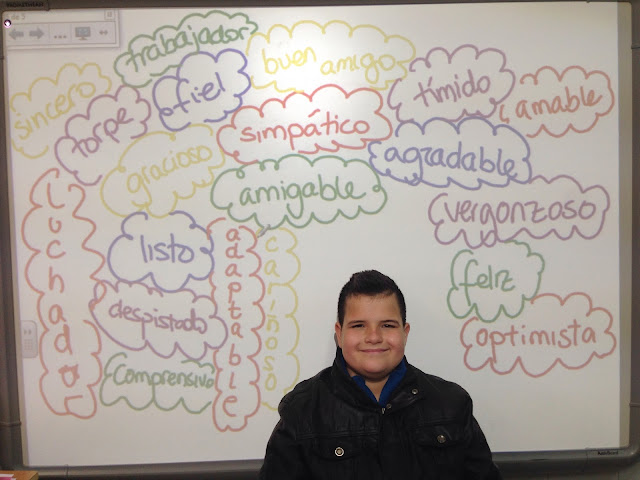 trabajador
buen amigo
sincero
fiel
tímido
amable
torpe
simpático
gracioso
agradable
amigable
vergonzoso
luchador
listo
adaptable
cariñoso
feliz
despistado
optimista
Comprensivo